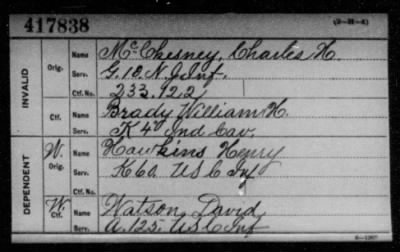 417838
(3-21-4)
INVALID
Orig.
Name McChesney, Charles H.
Serv. G. 18. N.J. Inf.
Ctf. No. 233.122
Ctf.
Name Brady William H.
Serv. K 4" Ind Cav.
DEPENDENT
W. Orig.
Name Hawkins Henry
Serv. K 60. US C Inf
Ctf. No.
W. Ctf.
Name Watson, David
Serv. A. 125. US C Inf